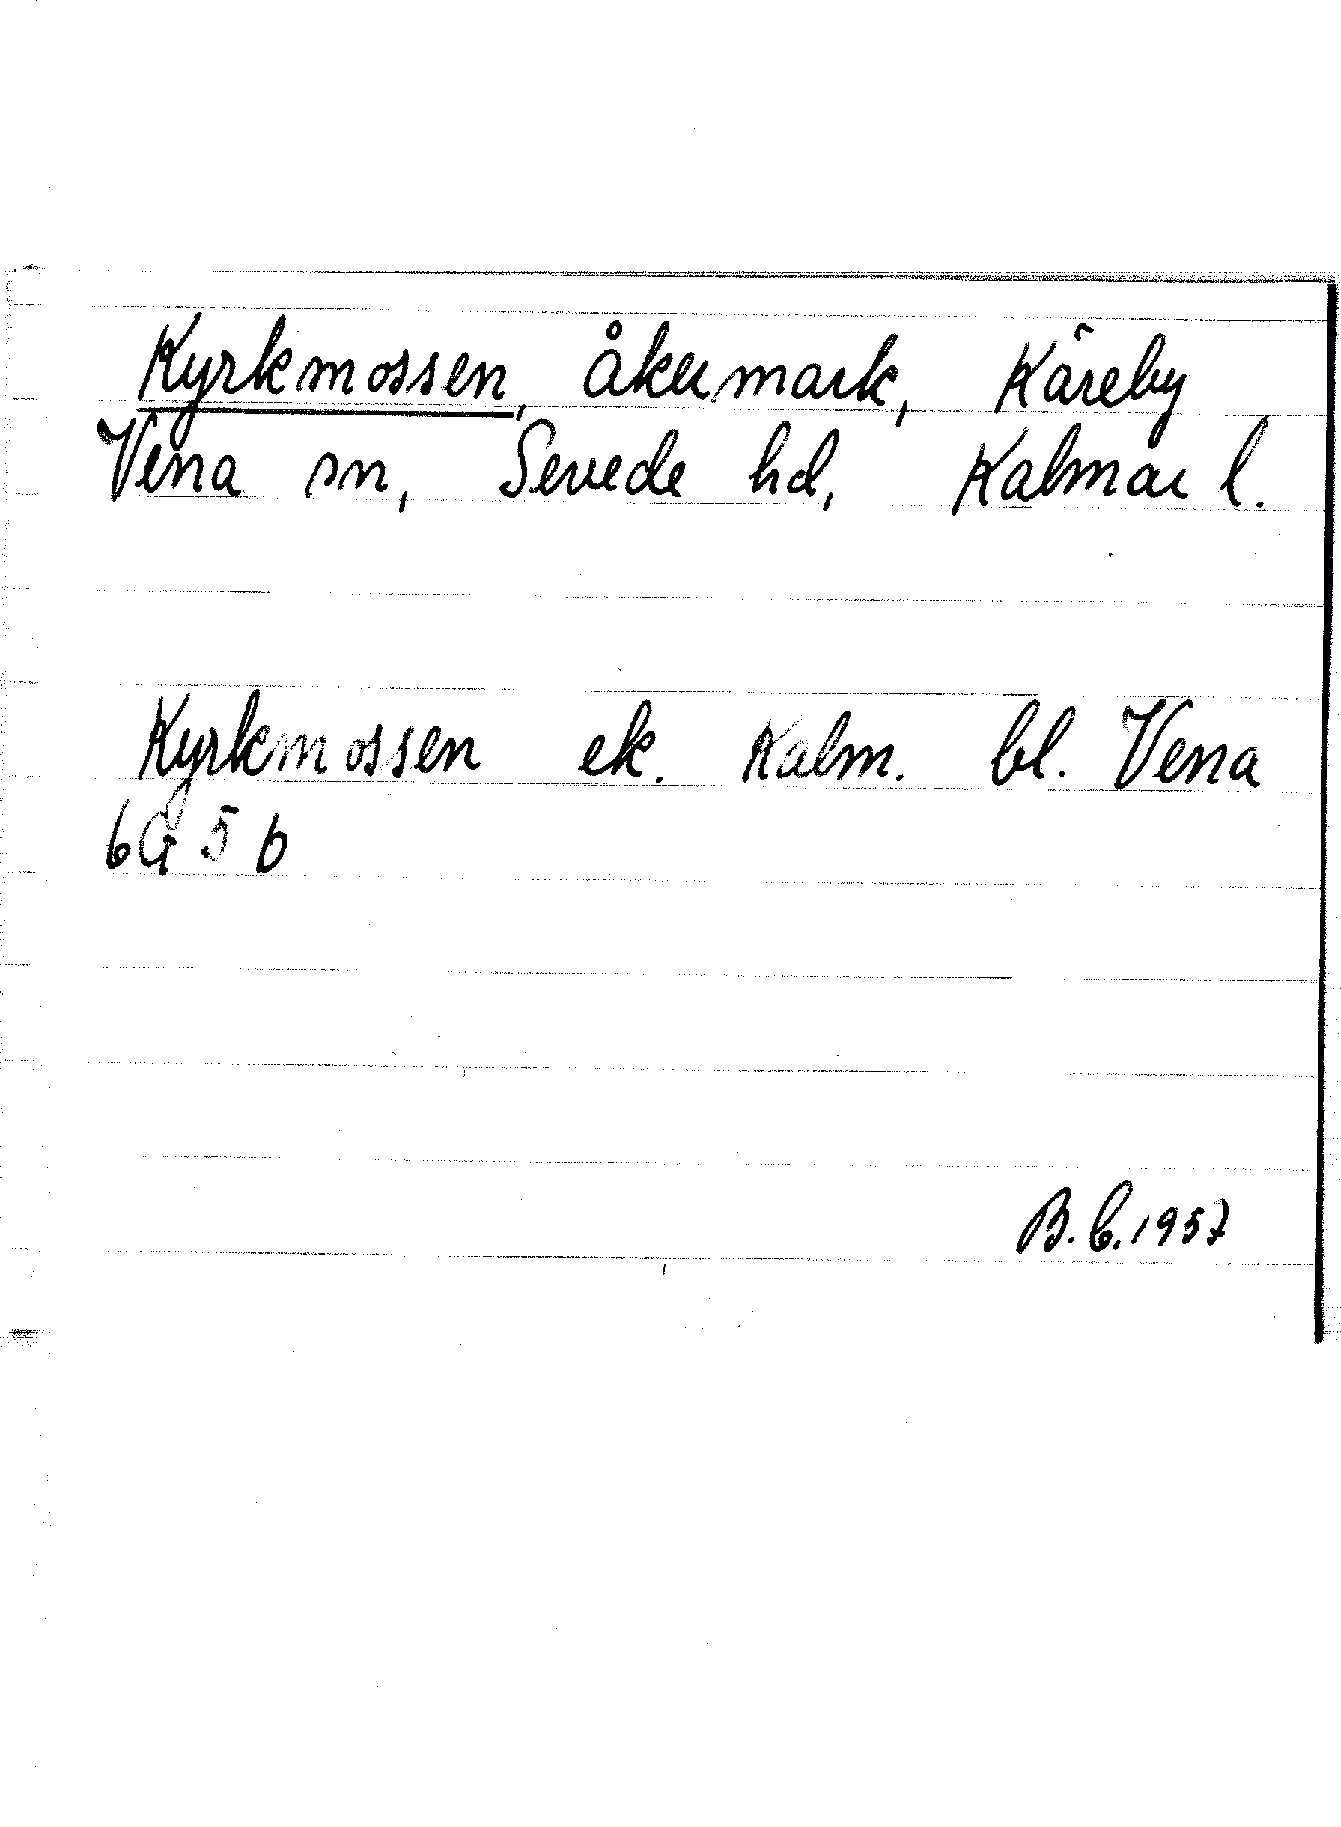 Kyrkmossen, åkermark, Käreby
Vena sn, Sevede hd, Kalmar l.
Kyrkmossen ek. Kalm. bl. Vena
6G 5 b
B.C. 1957